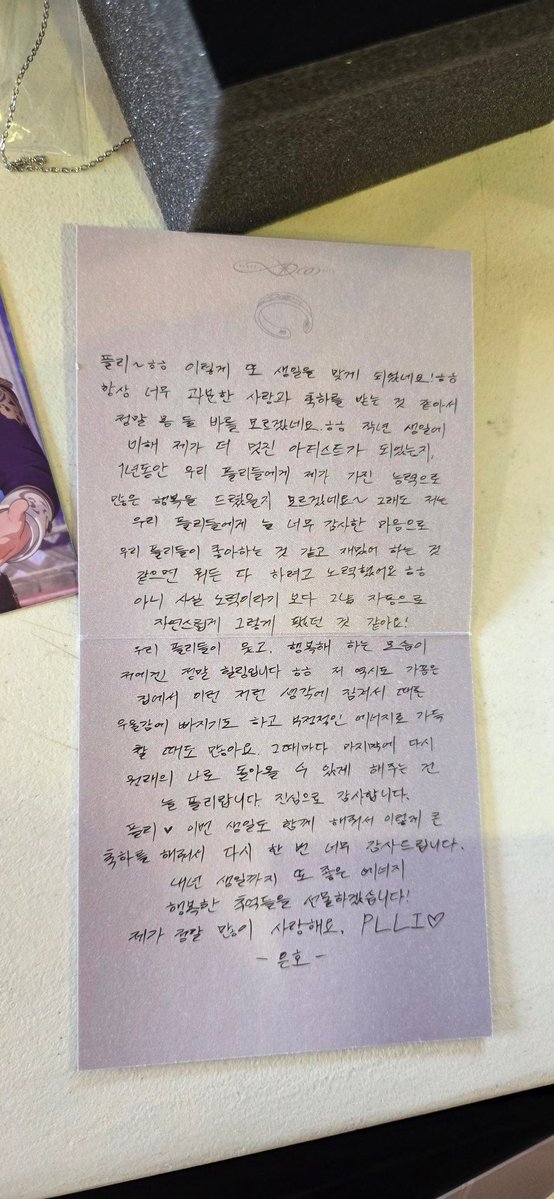 플리~ㅎㅎ 이렇게 또 생일을 맞게 되었네요!ㅎㅎ
항상 너무 과분한 사랑과 축하를 받는 것 같아서
정말 몸 둘 바를 모르겠네요.ㅎㅎ 작년 생일에
비해 제가 더 멋진 아티스트가 되었는지,
1년동안 우리 플리들에게 제가 가진 능력으로
많은 행복을 드렸을지 모르겠네요~ 그래도 저는
우리 플리들에게 늘 너무 감사한 마음으로
우리 플리들이 좋아하는 것 같고 재밌어 하는 것
같으면 뭐든 다 하려고 노력했어요ㅎㅎ
아니 사실 노력이라기 보다 그냥 자동으로
자연스럽게 그렇게 됐던 것 같아요!
우리 플리들이 웃고, 행복해 하는 모습이
저에겐 정말 힐링입니다 ㅎㅎ 저 역시도 가끔은
집에서 이런 저런 생각에 잠겨서 때론
우울감에 빠지기도 하고 부정적인 에너지로 가득
찰 때도 많아요. 그때마다 마지막에 다시
원래의 나로 돌아올 수 있게 해주는 건
늘 플리랍니다. 진심으로 감사합니다.
플리♥ 이번 생일도 함께 해줘서 이렇게 큰
축하를 해줘서 다시 한 번 너무 감사드립니다.
내년 생일까지 또 좋은 에너지
행복한 추억들을 선물하겠습니다!
제가 정말 많이 사랑해요, PLLI♡
- 은호 -